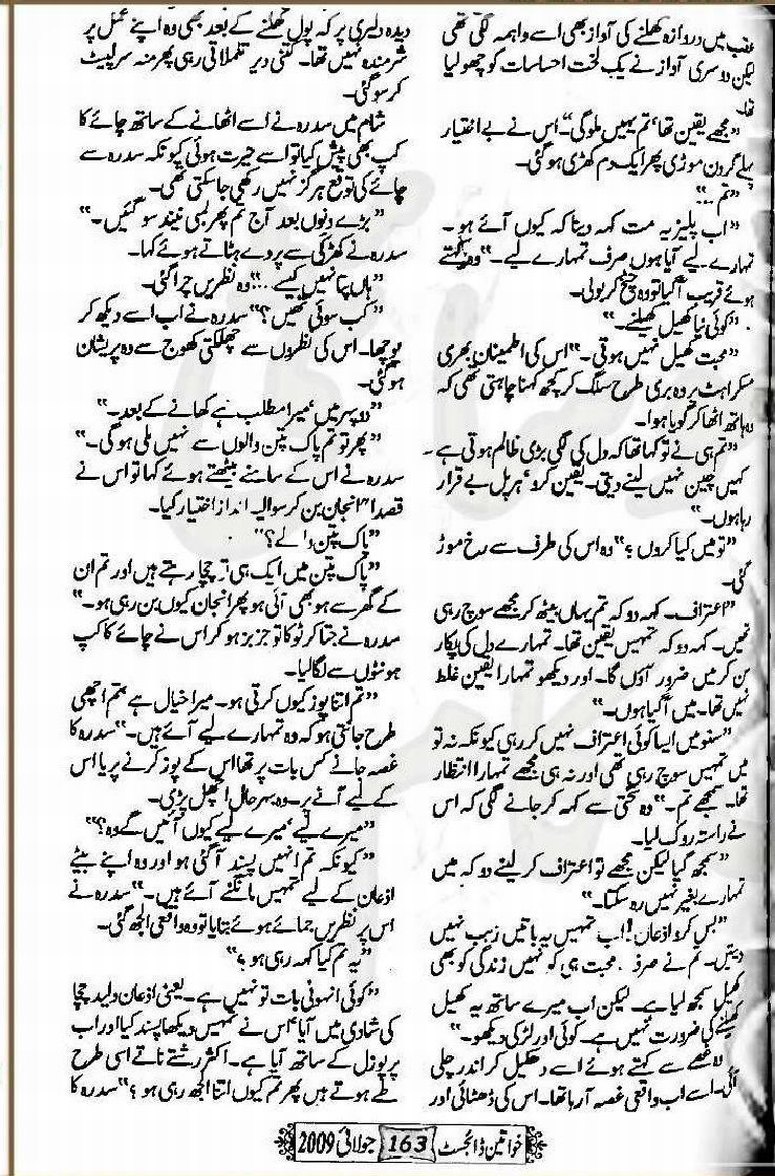 عقب میں دروازہ کھلنے کی آواز بھی اسے واہمہ لگی تھی
لیکن دوسری آواز نے یک لخت احساسات کو چھو لیا
تھا۔
”مجھے یقین تھا‘ تم یہیں ملو گی“۔ اس نے بے اختیار
پہلے گردن موڑی پھر ایک دم کھڑی ہو گئی۔
”تم...“
”اب پلیز یہ مت کہہ دینا کہ کیوں آئے ہو۔
تمہارے لیے آیا ہوں صرف تمہارے لیے۔“ وہ کہتے
ہوئے قریب آ گیا تو وہ چیخ کر بولی۔
”کوئی نیا کھیل کھیلنے۔“
”محبت کھیل نہیں ہوتی۔“ اس کی اطمینان بھری
مسکراہٹ پر وہ بری طرح سلگ کر کچھ کہنا چاہتی تھی کہ
وہ ہاتھ اٹھا کر گویا ہوا۔
”تم ہی نے تو کہا تھا کہ دل کی لگی بڑی ظالم ہوتی ہے۔
کہیں چین نہیں لینے دیتی۔ یقین کرو‘ ہر پل بے قرار
رہا ہوں۔“
”تو میں کیا کروں؟“ وہ اس کی طرف سے رخ موڑ
گئی۔
”اعتراف۔ کہہ دو کہ تم یہاں بیٹھ کر مجھے سوچ رہی
تھیں۔ کہہ دو کہ تمہیں یقین تھا۔ تمہارے دل کی پکار
سن کر میں ضرور آؤں گا۔ اور دیکھو تمہارا یقین غلط
نہیں تھا۔ میں آ گیا ہوں۔“
”سنو میں ایسا کوئی اعتراف نہیں کر رہی کیونکہ نہ تو
میں تمہیں سوچ رہی تھی اور نہ ہی مجھے تمہارا انتظار
تھا۔ سمجھے تم۔“ وہ سختی سے کہہ کر جانے لگی کہ اس
نے راستہ روک لیا۔
”سمجھ گیا لیکن مجھے تو اعتراف کر لینے دو کہ میں
تمہارے بغیر نہیں رہ سکتا۔“
”بس کرو اذعان! اب تمہیں یہ باتیں زیب نہیں
دیتیں۔ تم نے صرف محبت ہی کو نہیں زندگی کو بھی
کھیل سمجھ لیا ہے۔ لیکن اب میرے ساتھ یہ کھیل
کھیلنے کی ضرورت نہیں ہے۔ کوئی اور لڑکی دیکھو۔“
وہ غصے سے کہتے ہوئے اسے دھکیل کر اندر چلی
آئی۔ اسے اب واقعی غصہ آ رہا تھا۔ اس کی ڈھٹائی اور
دیدہ دلیری پر کہ پول کھلنے کے بعد بھی وہ اپنے عمل پر
شرمندہ نہیں تھا۔ کتنی دیر تلملاتی رہی پھر منہ سر لپیٹ
کر سو گئی۔
شام میں سدرہ نے اسے اٹھانے کے ساتھ چائے کا
کپ بھی پیش کیا تو اسے حیرت ہوئی کیونکہ سدرہ سے
چائے کی توقع ہرگز نہیں رکھی جا سکتی تھی۔
”بڑے دنوں بعد آج تم پھر لمبی نیند سو گئیں۔“
سدرہ نے کھڑکی سے پردے ہٹاتے ہوئے کہا۔
”ہاں پتا نہیں کیسے...“ وہ نظریں چرا گئی۔
”کب سوئی تھیں؟“ سدرہ نے اب اسے دیکھ کر
پوچھا۔ اس کی نظروں سے جھلکتی کھوج سے وہ پریشان
ہو گئی۔
”دوپہر میں‘ میرا مطلب ہے کھانے کے بعد۔“
”پھر تو تم پاک پتن والوں سے نہیں ملی ہو گی۔“
سدرہ نے اس کے سامنے بیٹھتے ہوئے کہا تو اس نے
قصداً انجان بن کر سوالیہ انداز اختیار کیا۔
”پاک پتن والے؟“
”پاک پتن میں ایک ہی تو چچا رہتے ہیں اور تم ان
کے گھر سے ہو بھی آئی ہو پھر انجان کیوں بن رہی ہو۔“
سدرہ نے جتا کر ٹوکا تو جزبز ہو کر اس نے چائے کا کپ
ہونٹوں سے لگا لیا۔
”تم اتنا پوز کیوں کرتی ہو۔ میرا خیال ہے تم اچھی
طرح جانتی ہو کہ وہ تمہارے لیے آئے ہیں۔“ سدرہ کا
غصہ جانے کس بات پر تھا اس کے پوز کرنے پر یا اس
کے لیے آنے پر۔ وہ بہرحال اچھل پڑی۔
”میرے لیے‘ میرے لیے کیوں آئیں گے وہ؟“
”کیونکہ تم انہیں پسند آ گئی ہو اور وہ اپنے بیٹے
اذعان کے لیے تمہیں مانگنے آئے ہیں۔“ سدرہ نے
اس پر نظریں جمائے ہوئے بتایا تو وہ واقعی الجھ گئی۔
”یہ تم کیا کہہ رہی ہو؟“
”کوئی انہونی بات تو نہیں ہے۔ یعنی اذعان ولید چچا
کی شادی میں آیا‘ اس نے تمہیں دیکھا پسند کیا اور اب
پرپوزل کے ساتھ آیا ہے۔ اکثر رشتے ناتے اسی طرح
طے ہوتے ہیں پھر تم کیوں اتنا الجھ رہی ہو؟“ سدرہ کا
خواتین ڈائجسٹ 163 جولائی 2009